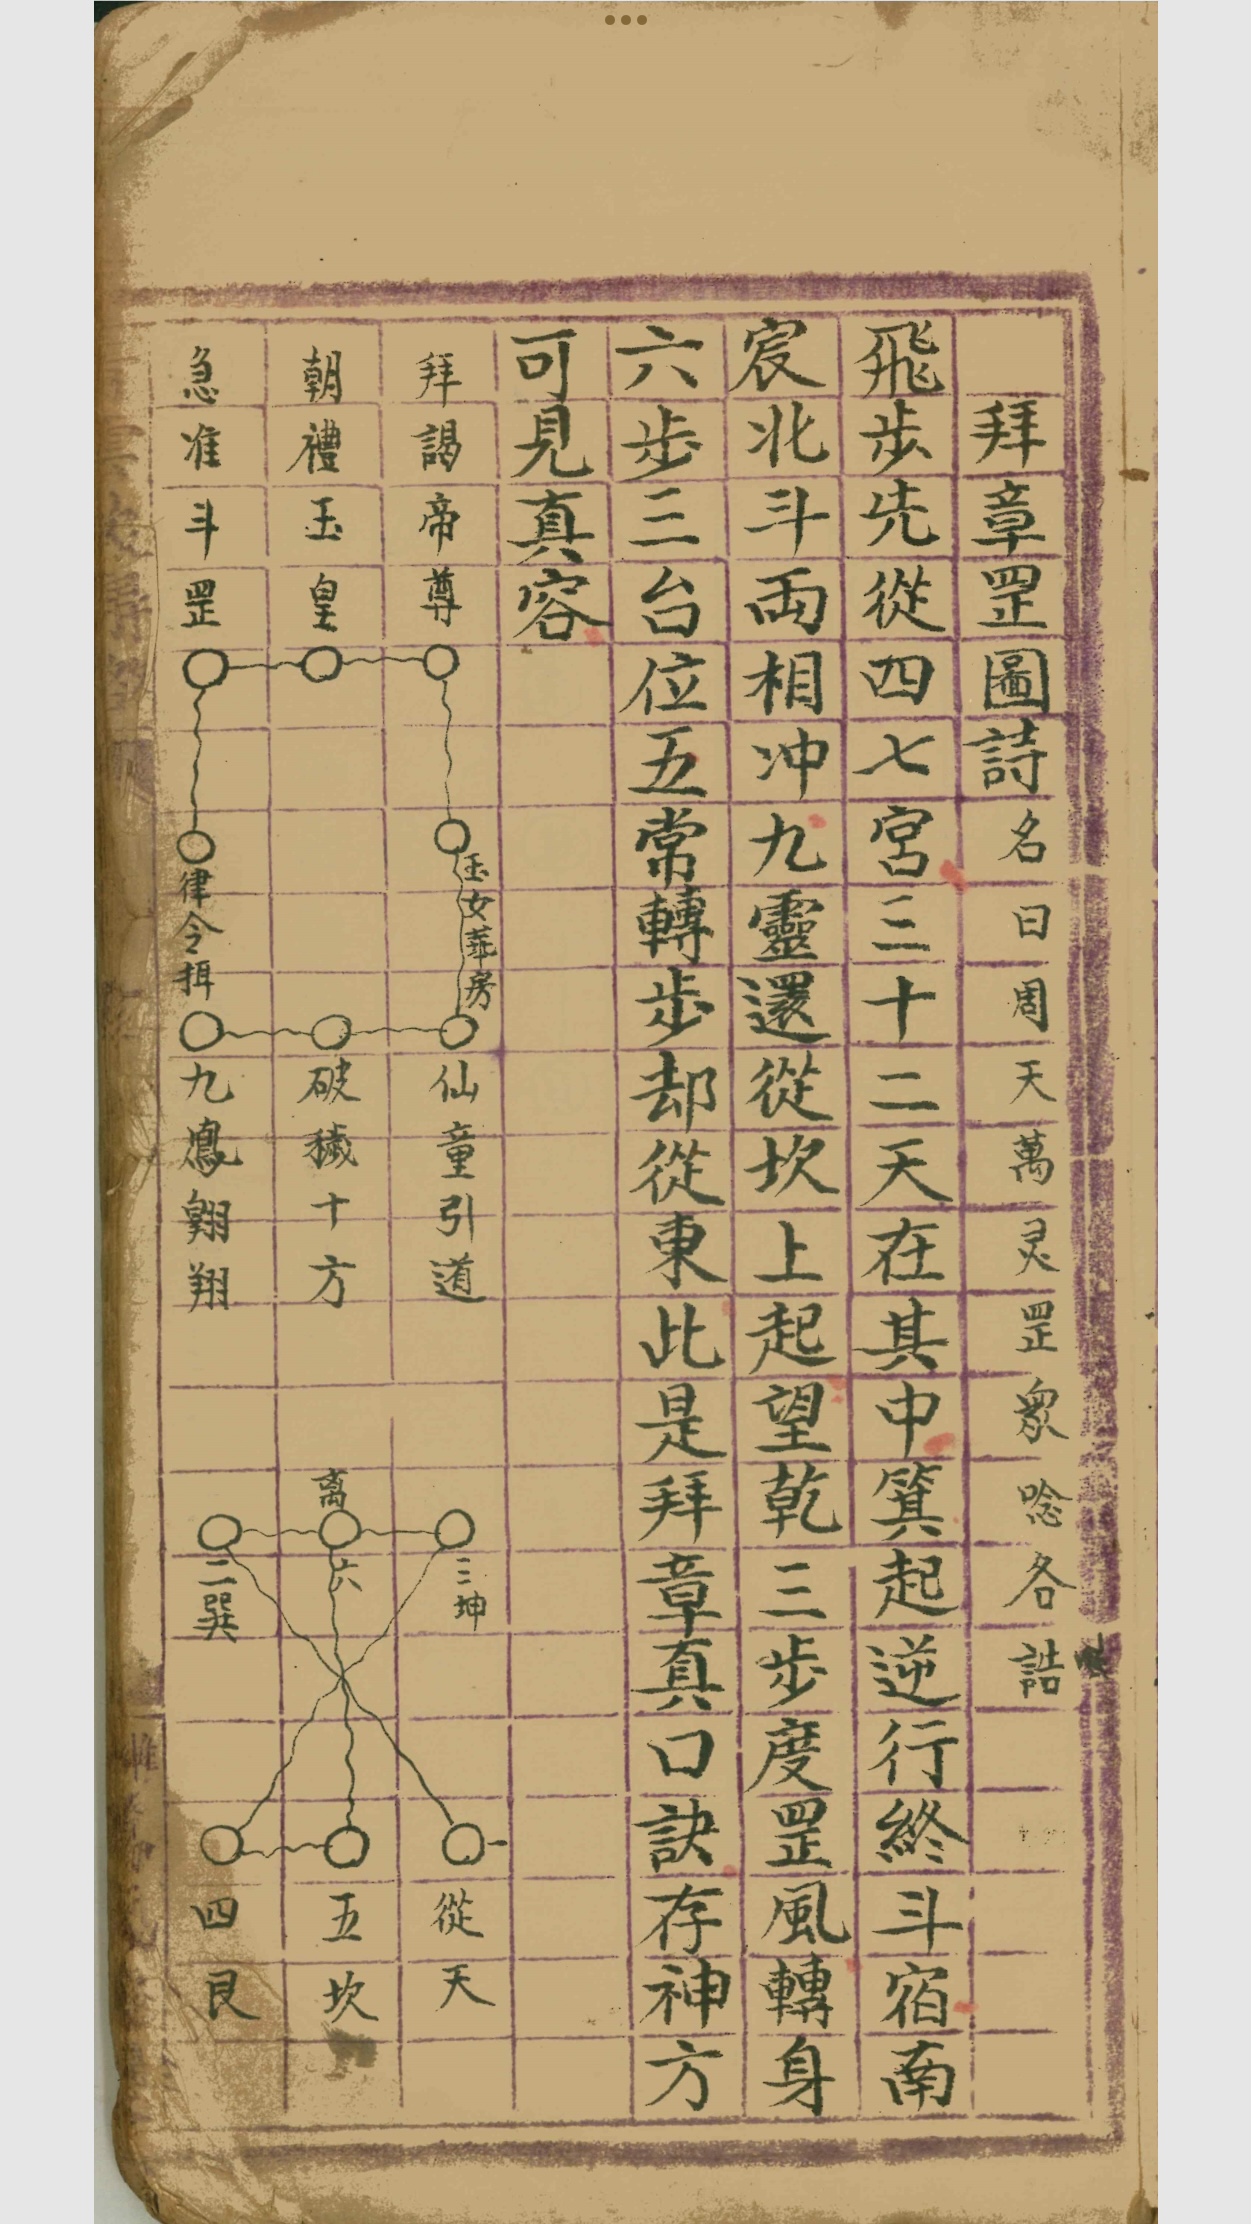 拜章罡圖詩名曰周天萬灵罡衆唸各誥
飛步先從四七宮三十二天在其中箕起逆行終斗宿南
宸北斗両相冲九靈還從坎上起望乾三步度罡風轉身
六步三台位五常轉步却從東此是拜章真口訣存神方
可見真容
拜謁帝尊
玉女華房
仙童引道
三坤
從天
朝禮玉皇
破穢十方
离
六
五坎
急准斗罡
律令揖
九鳳翱翔
二巽
四艮